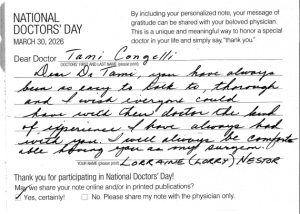 NATIONAL
DOCTORS' DAY
MARCH 30, 2026
By including your personalized note, your message of
gratitude can be shared with your beloved physician.
This is a unique and meaningful way to honor a special
doctor in your life and simply say, "thank you."
Dear Doctor Tami Congelli
DOCTORS' FIRST AND LAST NAME (please print)
Dear Dr Tami, you have always
been so easy to talk to, thorough
and I wish everyone could
have with their doctor the kind
of experience I have always had
with you. I will always be comfort-
able having you as my surgeon.
YOUR NAME (please print) LORRAINE (LORRY) NESTOR
Thank you for participating in National Doctors' Day!
May we share your note online and/or in printed publications?
✓ Yes, certainly! ☐ No. Please share my note with the physician only.